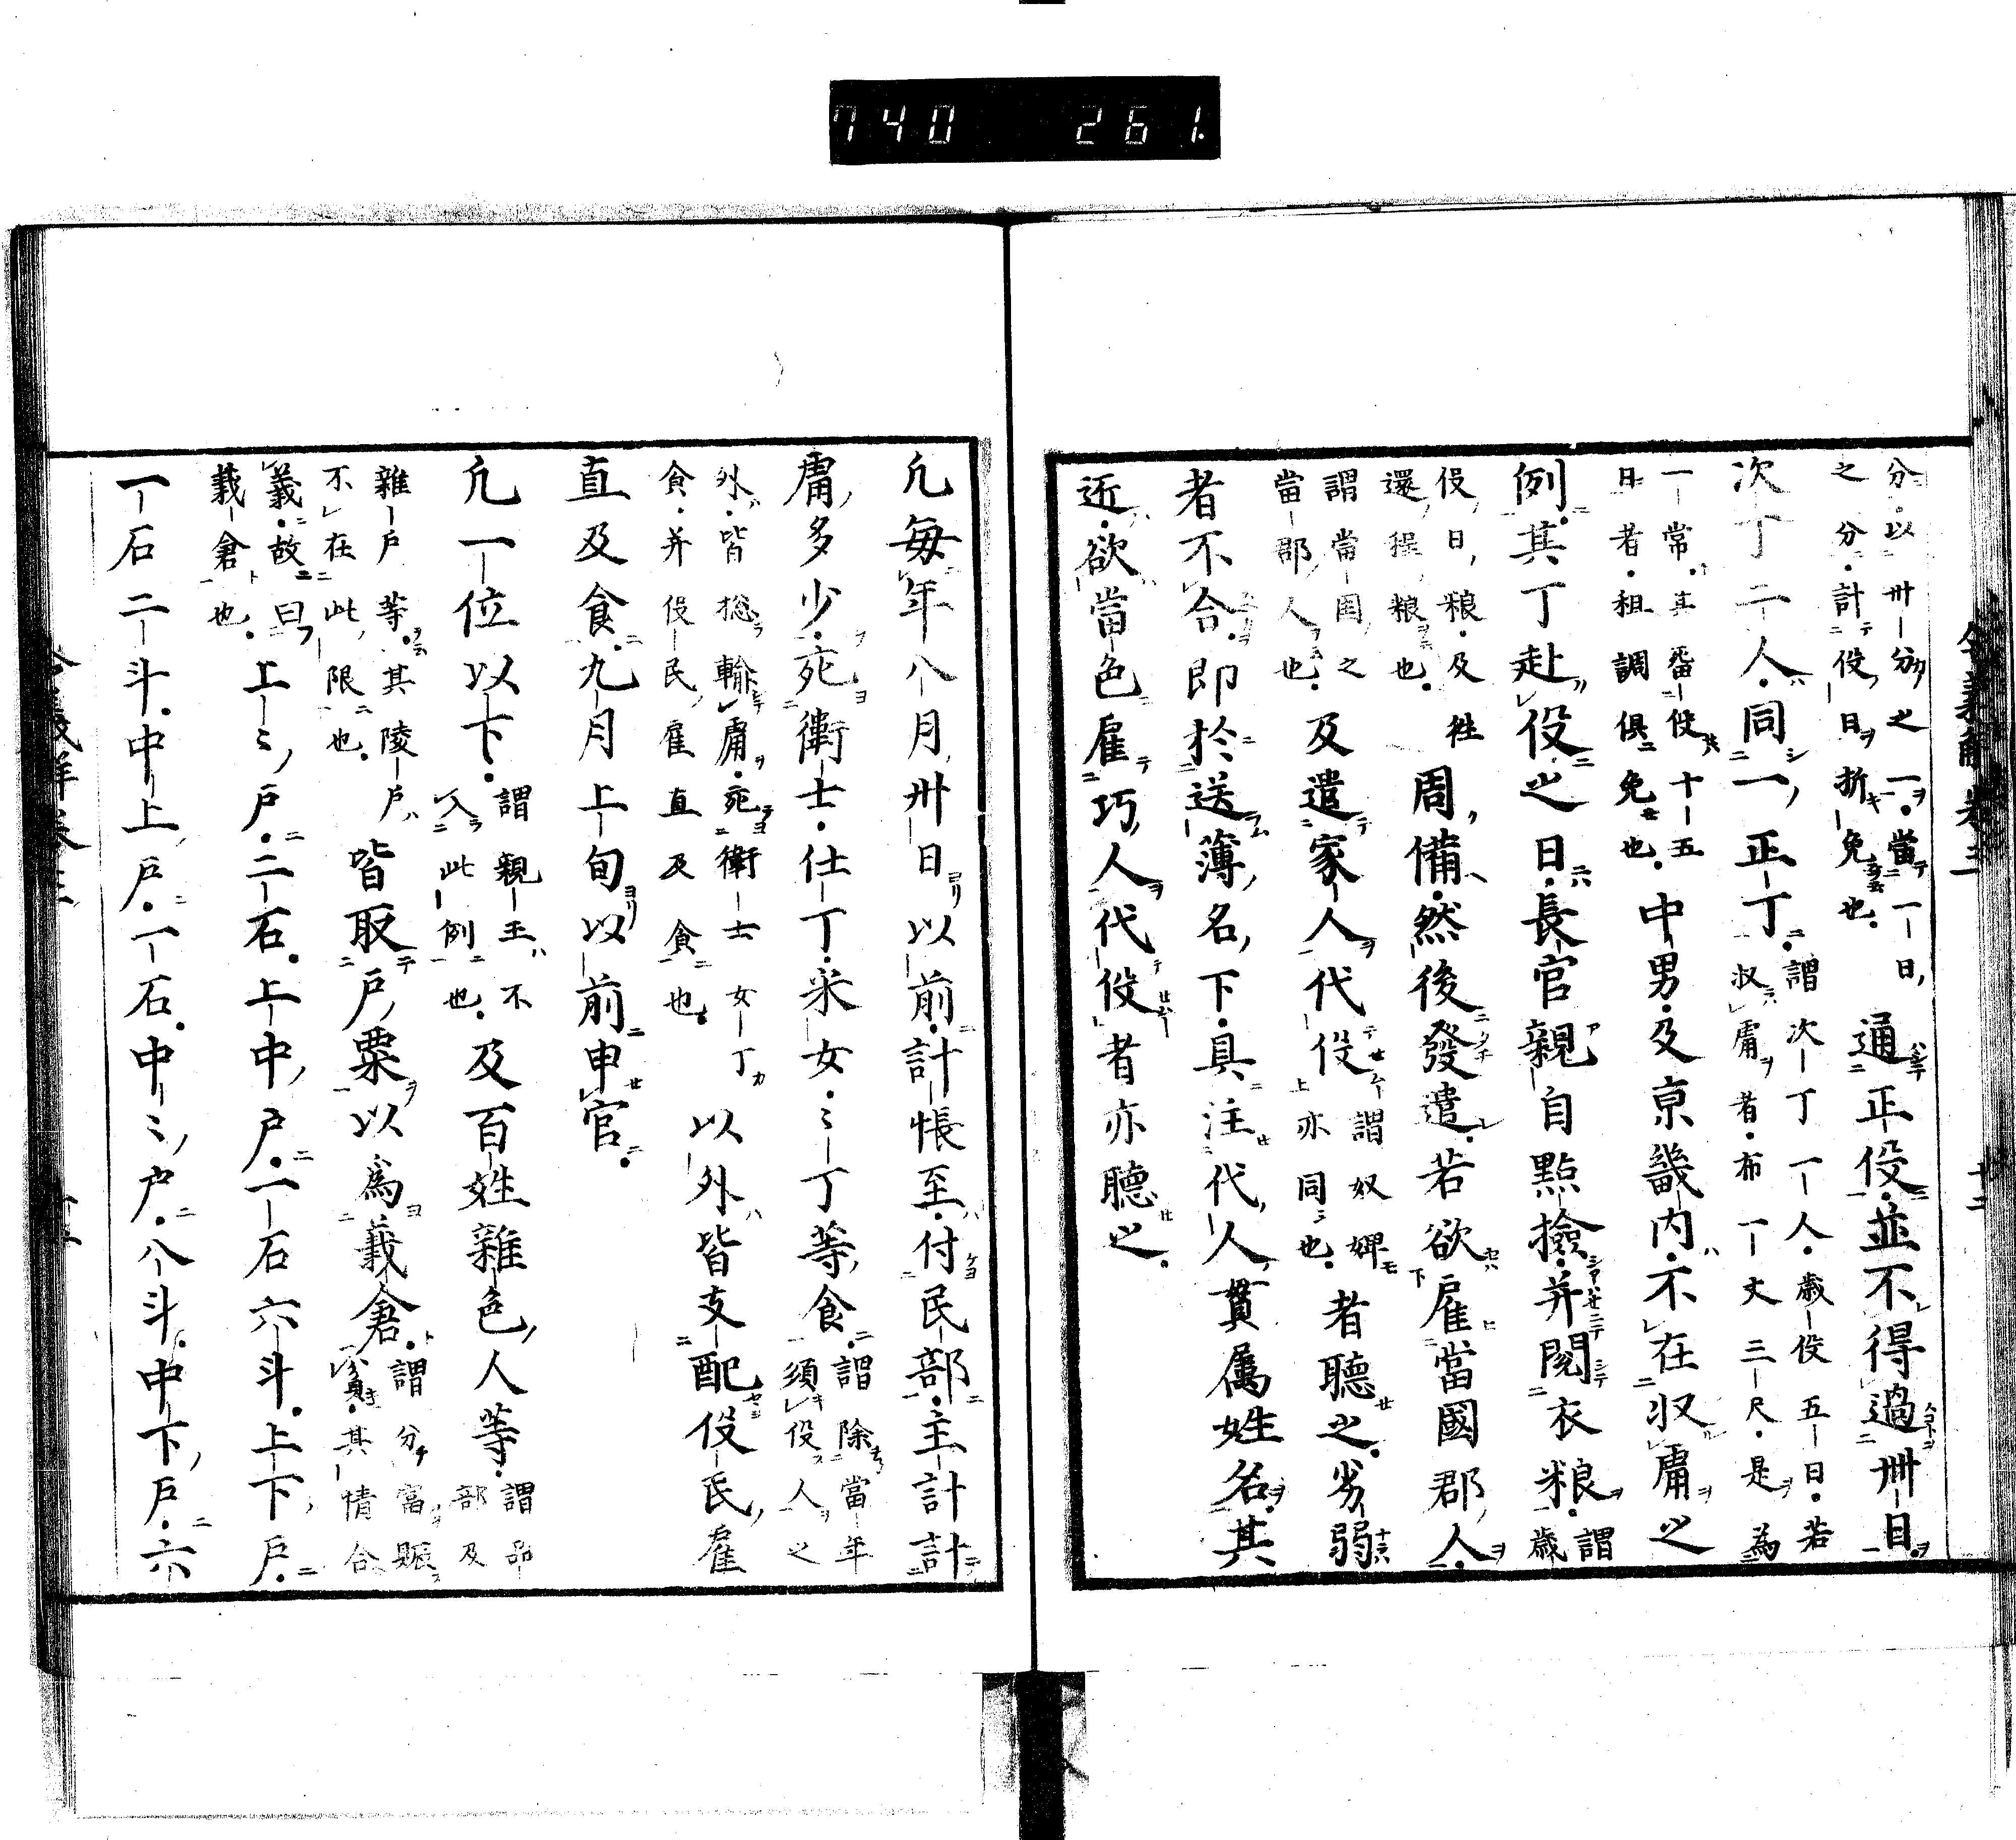 740 261
分以卅分之一當一日通正役並不得過卅日
之分計役日折免也
次丁二人同一正丁謂次丁一人歳役五日若
収庸者布一丈三尺是為
一常其番役十五中男及京畿内不在収庸之
日者租調俱免也
例其丁赴役之日長官親自點撿并閲衣粮謂
歳
役日粮及往周備然後發遣若欲雇當國郡人
還程粮也
謂當国之及遣家人代役謂奴婢者聽之劣弱
當郡人也上亦同也
者不合即於送薄名下具注代人貫属姓名其
近欲當色雇巧人代役者亦聽之
凢毎年八月卅日以前計帳至付民部主計計
庸多少宛衛士仕丁釆女〻丁等食謂除當年
須役人之
外皆揔輸庸宛衛士女丁以外皆支配役民雇
食并役民雇直及食也
直及食九月上旬以前申官
凢一位以下謂親王不及百姓雜色人等謂品
入此例也部及
雜戸等其陵戸皆取戸粟以為義倉謂分富賑
不在此限也貧其情合
義故曰上〻戸二石上中戸一石六斗上下戸
義倉也
一石二斗中上戸一石中〻戸八斗中下戸六